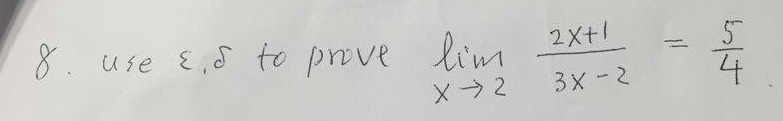 8. use ε,δ to prove lim x→2 (2x+1)/(3x-2) = 5/4.